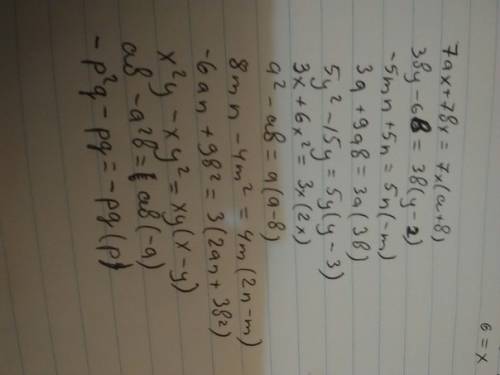 6 = x
7ax + 7вx = 7x(a+в)
3вy - 6в = 3в(y-2)
-5mn + 5n = 5n(-m)
3a + 9aв = 3a(3в)
5y² - 15y = 5y(y-3)
3x + 6x² = 3x(2x)
a² - aв = a(a-в)
8mn - 4m² = 4m(2n-m)
-6an + 9в² = 3(2an + 3в²)
x²y - xy² = xy(x-y)
aв - a²в = aв(-a)
-p²q - pq = -pq(p)